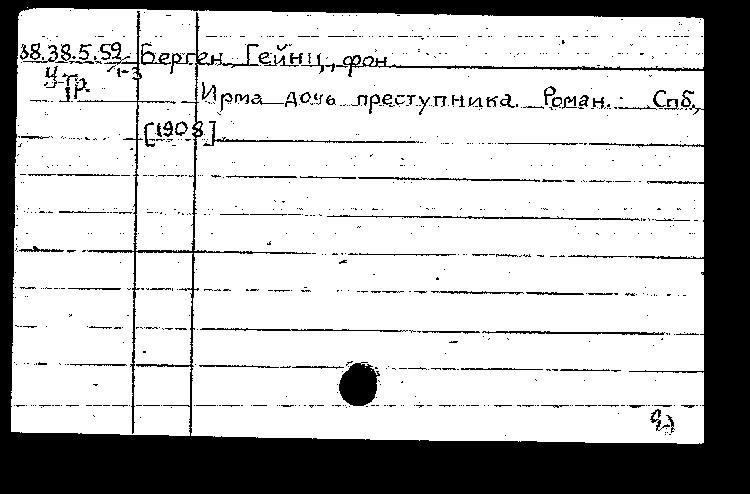 38.38.5.59 Берген, Гейнц, фон
1-3
Ирма дочь преступника. Роман. Спб.,
[1908]